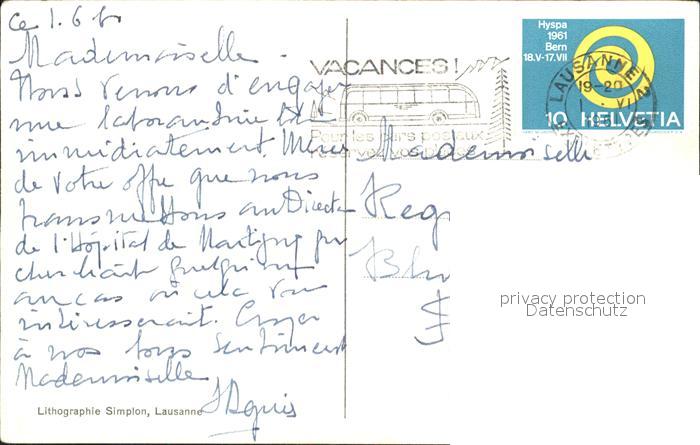 Ce 1.6.61
Mademoiselle.
Nous venons d'engager
une laborantine
immédiatement. Merci
de votre offre que nous
transmettons au Directeur
de l'Hôpital de Martigny qui
cherchait quelqu'un
au cas où cela vous
intéresserait. Croyez
à nos bons sentiments
Mademoiselle
Lithographie Simplon, Lausanne
VACANCES!
Pour les cars postaux
réservez vos places
Hyspa
1961
Bern
18.V-17.VII
10 HELVETIA
LAUSANNE
19-20
Mademoiselle
Reg
privacy protection
Datenschutz